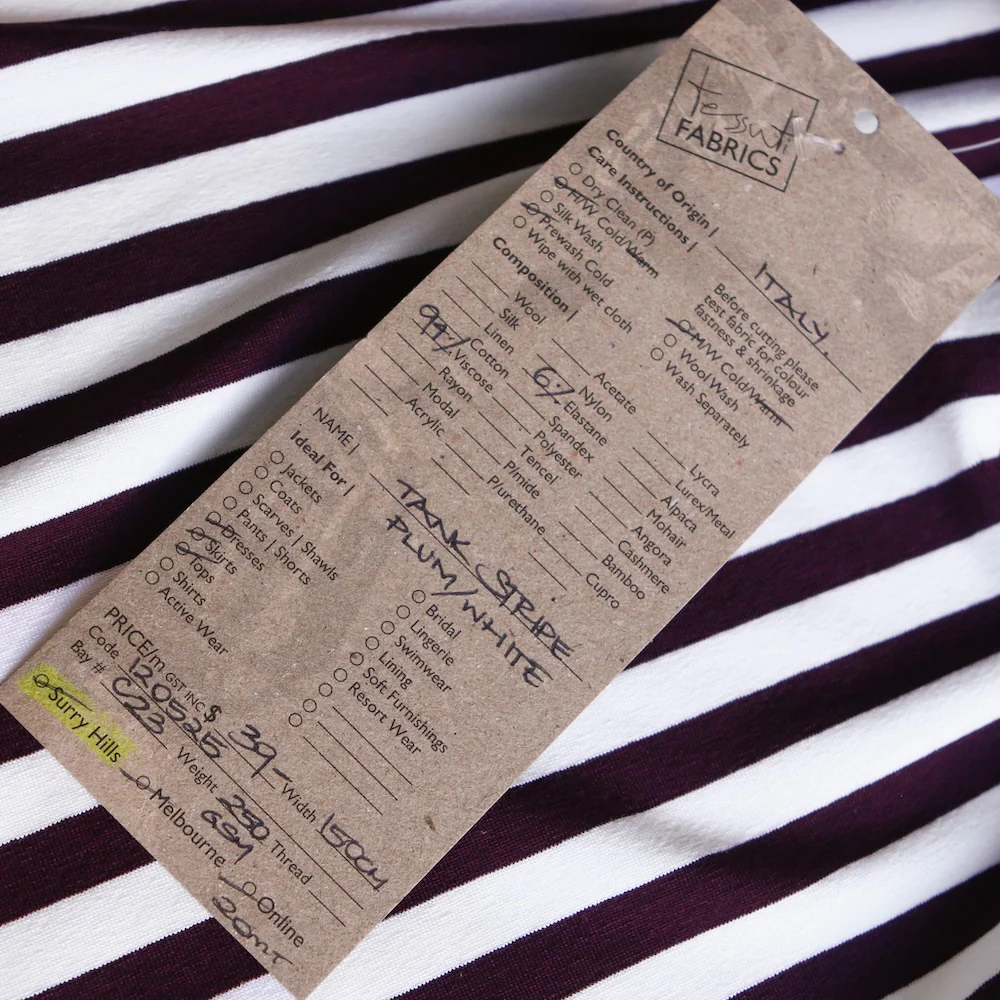 tessuti
FABRICS
Country of Origin | ITALY.
Care Instructions |
Dry Clean (P)
H/W Cold/Warm
Silk Wash
Prewash Cold
Wipe with wet cloth
Before cutting please
test fabric for colour
fastness & shrinkage
GM/W Cold/Warm
Wool Wash
Wash Separately
Composition |
Wool
Silk
Linen
Cotton
94% Viscose
Rayon
Modal
Acrylic
Acetate
Nylon
6% Elastane
Spandex
Polyester
Tencel
P/mide
P/urethane
Lycra
Lurex/Metal
Alpaca
Mohair
Angora
Cashmere
Bamboo
Cupro
NAME | TANK STRIPE
PLUM/WHITE
Ideal For |
Jackets
Coats
Scarves | Shawls
Pants | Shorts
Dresses
Skirts
Tops
Shirts
Active Wear
Bridal
Lingerie
Swimwear
Lining
Soft Furnishings
Resort Wear
PRICE/m GST INC $ 39- Width 150CM
Code Weight GSM Thread
Bay # C23
Surry Hills Melbourne Online
20MT